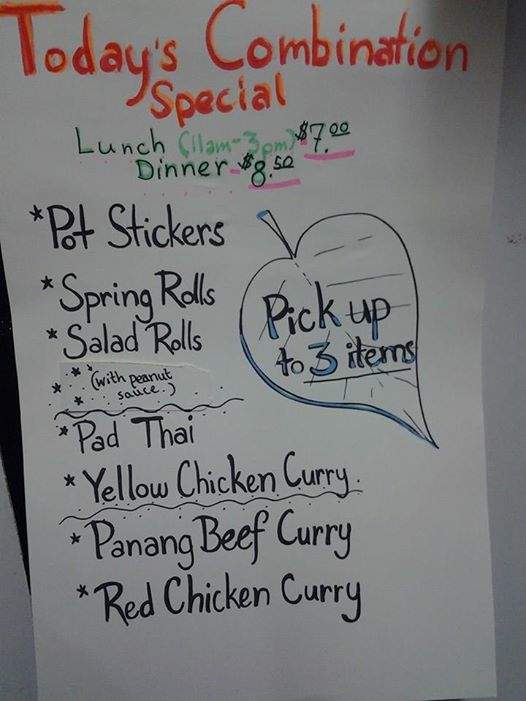 Today's Combination
Special
Lunch (11am-3pm) $7.00
Dinner-$8.50
*Pot Stickers
*Spring Rolls
*Salad Rolls
(with peanut
sauce.)
Pick up
to 3 items
*Pad Thai
*Yellow Chicken Curry.
*Panang Beef Curry
*Red Chicken Curry